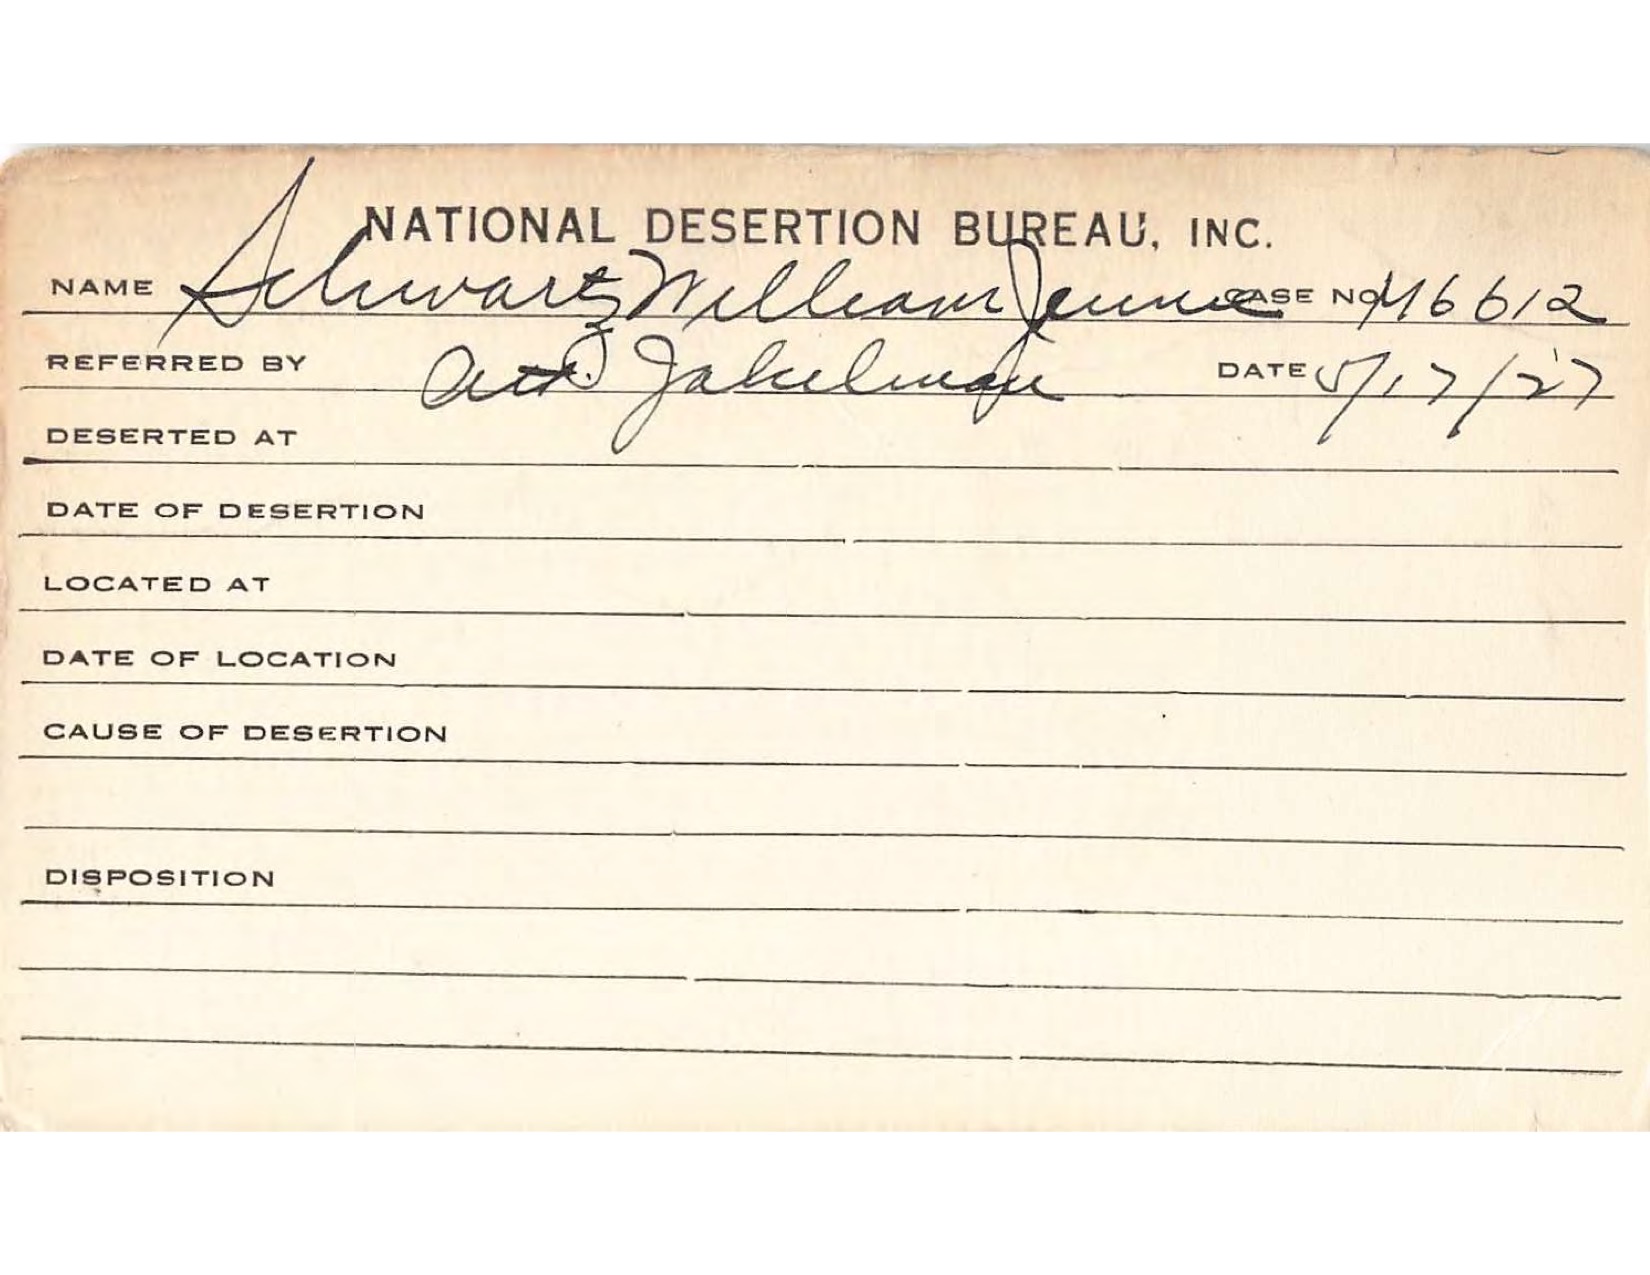 NATIONAL DESERTION BUREAU, INC.
NAME Schwartz William Jennie CASE NO. 46612
REFERRED BY Att. DATE 5/17/27
DESERTED AT
DATE OF DESERTION
LOCATED AT
DATE OF LOCATION
CAUSE OF DESERTION
DISPOSITION